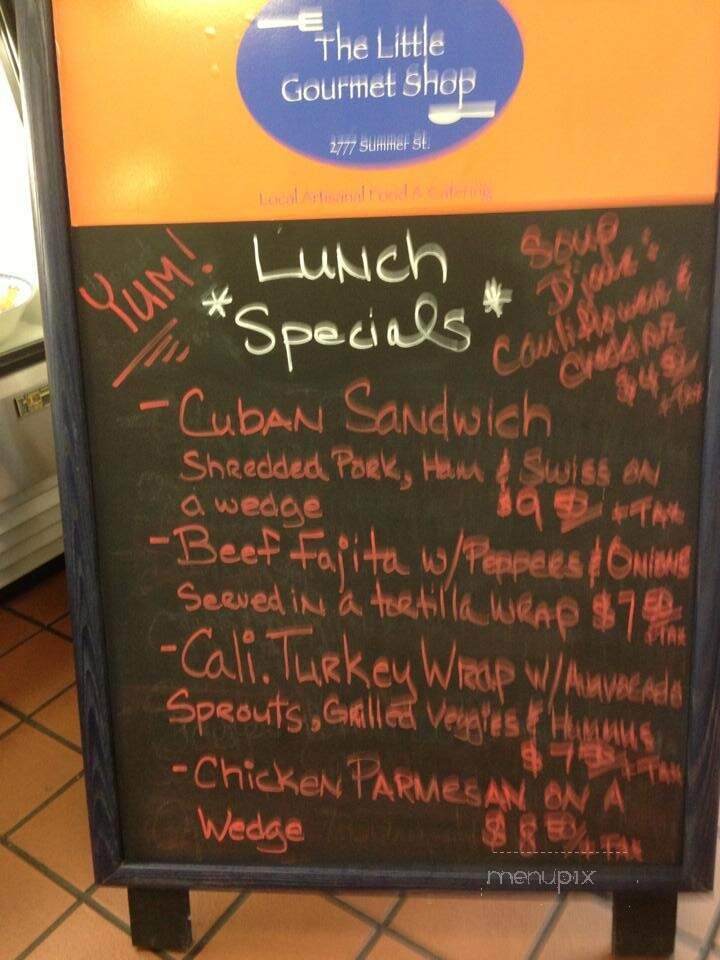 The Little
Gourmet Shop
2777 Summer St.
Local Artisanal Food & Catering
Yum!
Lunch
*Specials*
Soup
D'jour:
Cauliflower &
Cheddar
$4
+Tax
- Cuban Sandwich
Shredded Pork, Ham & Swiss on
a wedge $9 +Tax
- Beef Fajita w/ Peppers & Onions
Served in a tortilla wrap $7 50
+Tax
- Cali. Turkey Wrap w/
Sprouts, Grilled Veggies & Hummus
$7 +Tax
- Chicken Parmesan on a
Wedge $8 50 +Tax
menupix